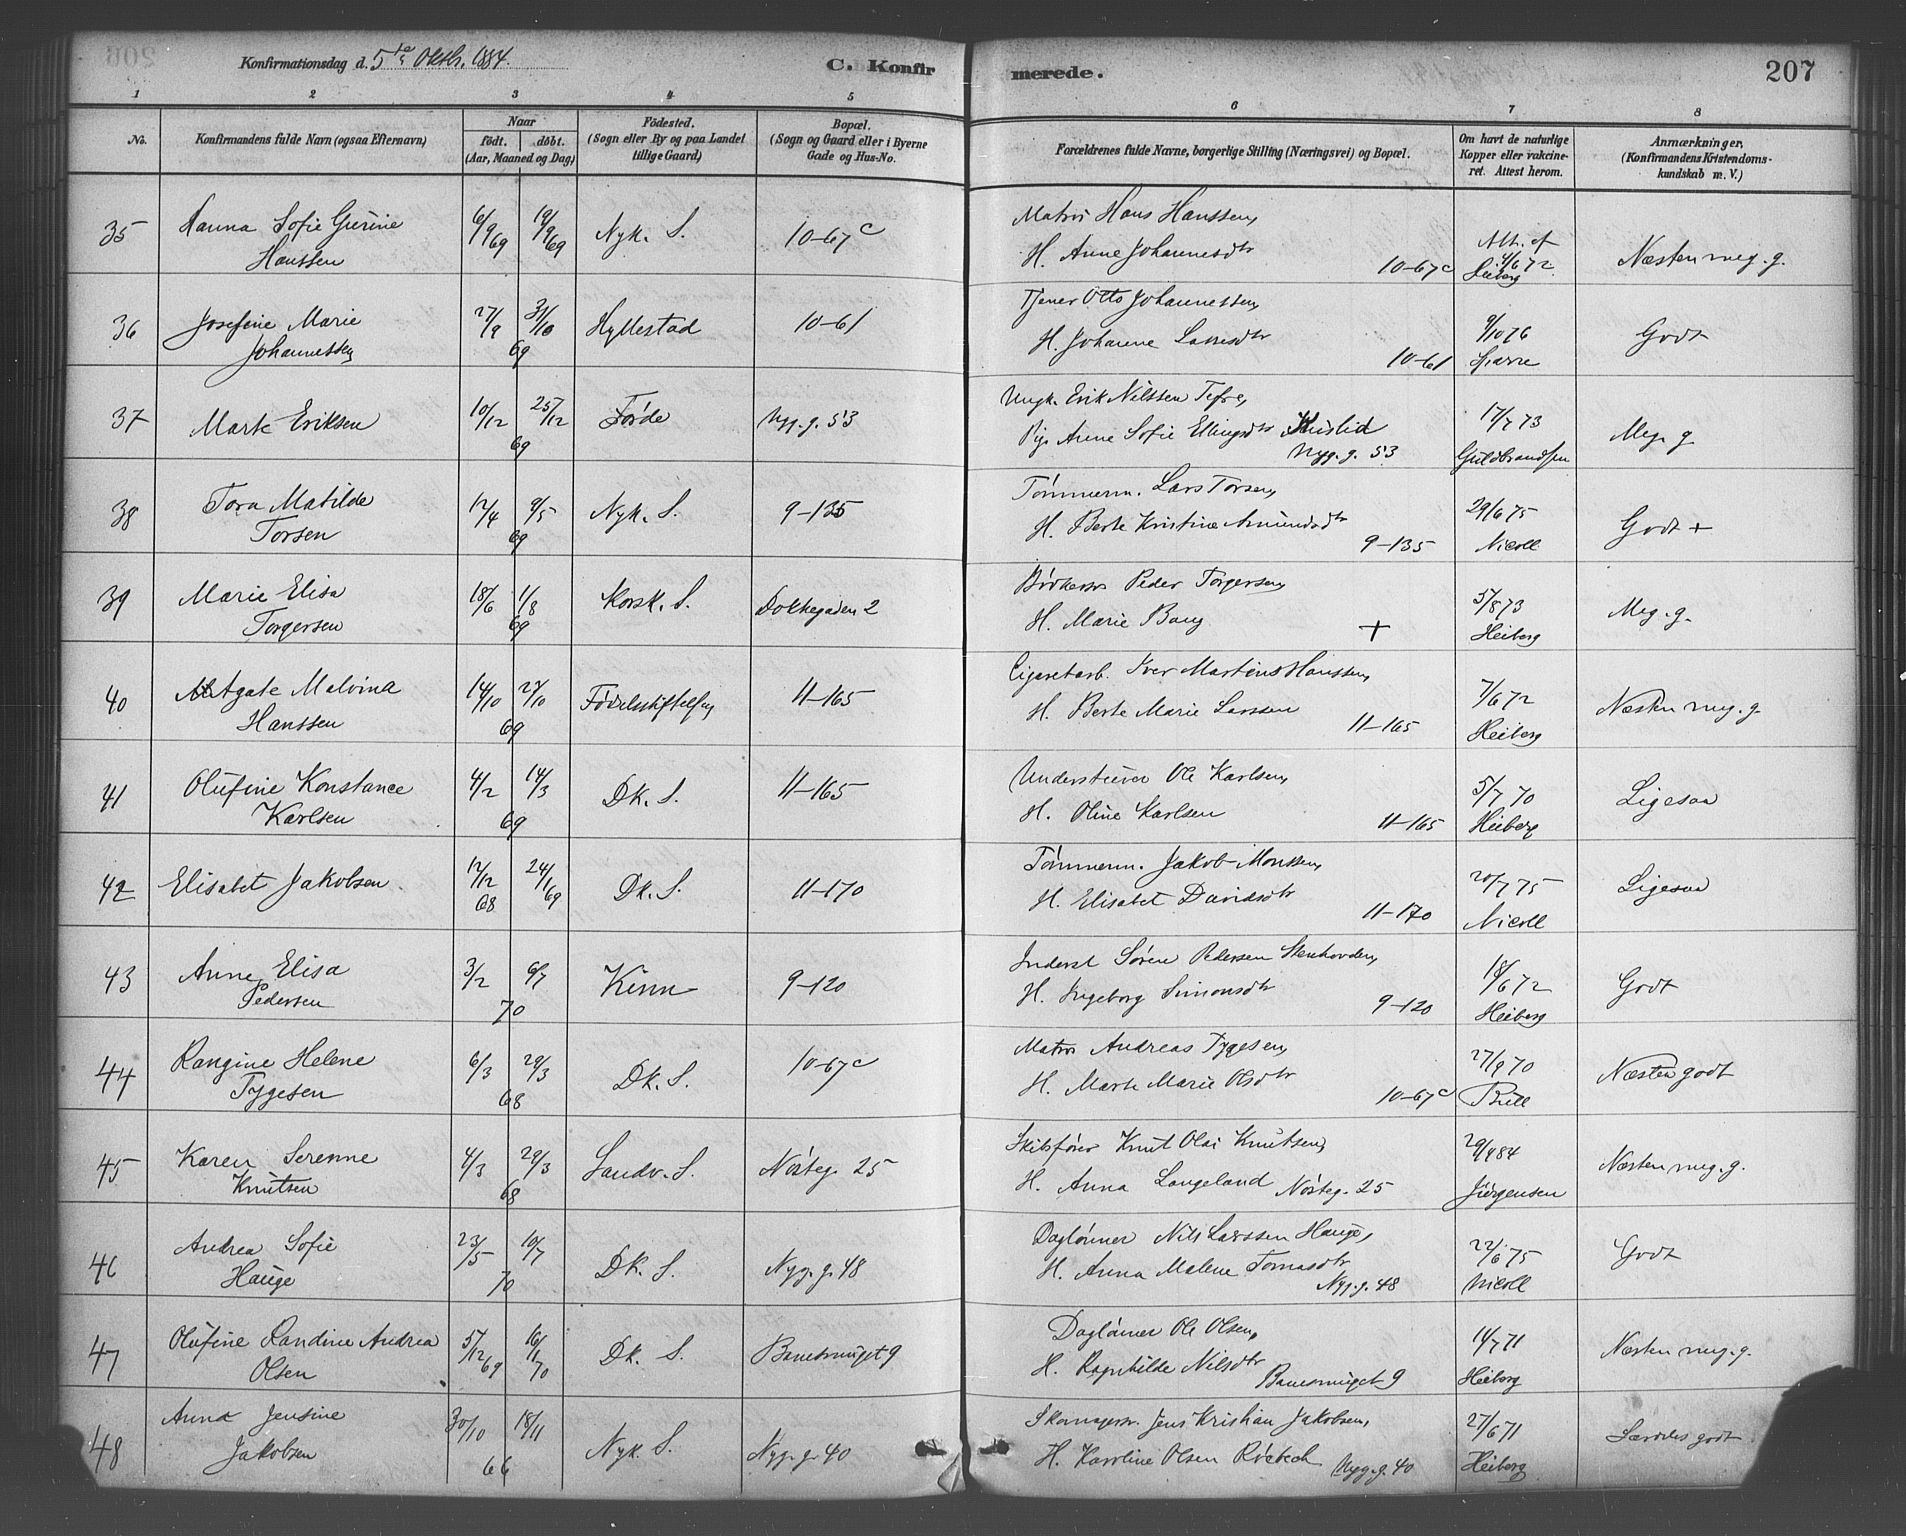 Konfirmationsdag d. 5te Oktbr. 1884.
C. Konfirmerede. 207
1 2 3 4 5 6 7 8
No. | Konfirmandens fulde Navn (ogsaa Efternavn) | Naar født. døbt. (Aar, Maaned og Dag) | Fødested. (Sogn eller By og paa Landet tillige Gaard) | Bopæl. (Sogn og Gaard eller i Byerne Gade og Hus-No. | Forældrenes fulde Navne, borgerlige Stilling (Næringsvei) og Bopæl. | Om havt de naturlige Kopper eller vakcineret. Attest herom. | Anmærkninger, (Konfirmandens Kristendomskundskab m. V.)
35 Hanna Sofie Gurine Hanssen 6/9 69 19/9 69 Nyk. S. 10-67c Matros Hans Hanssen, H. Anne Johannesdtr 10-67c Att. af 4/6 72 Heiberg Næsten meg. g.
36 Josefine Marie Johannessen 27/9 31/10 69 Hyllestad 10-61 Tjener Otto Johannessen, H. Johanne Larsdtr 10-61 9/10 76 Sparre Godt
37 Marte Eriksen 10/12 25/12 69 Førde Nyg. g. 53 Ungk. Erik Nilssen Tefre, Pige Anne Sofie Ellingsdtr Nyg. g. 53 17/7 73 Guldbrandsen Meg. g.
38 Tora Matilde Torsen 12/4 9/5 69 Nyk. S. 9-135 Tømmerm. Lars Torsen, H. Berte Kristine Amundsdtr 9-135 29/6 75 Nicoll Godt +
39 Marie Elisa Torgersen 18/6 1/8 69 Korsk. S. Dokkegaden 2 Bødkersv. Peder Torgersen, H. Marie Bang + 5/8 73 Heiberg Meg. g.
40 Agate Malvina Hanssen 14/10 27/10 69 Fødselsstiftelsen 11-165 Cigaretarb. Iver Martinus Hanssen, H. Berte Marie Larssen 11-165 7/6 72 Heiberg Næsten meg. g.
41 Olufine Konstance Karlsen 4/2 14/3 69 Dk. S. 11-165 Understuver Ole Karlsen, H. Oline Karlsen 11-165 5/7 70 Heiberg Ligesaa
42 Elisabet Jakobsen. 12/12 68 24/1 69 Dk. S. 11-170 Tømmerm. Jakob Monssen, H. Elisabet Davidsdtr 11-170 20/7 75 Nicoll Ligesaa
43 Anne Elisa Pedersen 3/2 6/7 70 Kinn 9-120 Inderst Søren Pedersen Stenhovden, H. Ingeborg Simonsdtr 9-120 18/6 72 Heiberg Godt
44 Rangine Helene Tygesen 6/3 29/3 68 Dk. S. 10-67c Matros Andreas Tygesen, H. Marte Marie Olsdtr 10-67c 27/9 70 Bull Næsten godt
45 Karen Serenne Knutsen 4/3 29/3 68 Sandv. S. Nøsteg. 25 Skibsfører Knut Olai Knutsen, H. Anna Langeland Nøsteg. 25 29/4 84 Jürgensen Næsten meg. g.
46 Andrea Sofie Hauge 23/5 10/7 70 Dk. S. Nyg. g. 48 Daglønner Nils Larssen Hauge, H. Anna Malene Tomasdtr Nyg. g. 48 22/6 75 Nicoll Godt
47 Olufine Randine Andrea Olsen 5/12 69 16/1 70 Dk. S. Banesmuget 9 Dagløner Ole Olsen, H. Ragnhilde Nilsdtr Banesmuget 9 14/7 71 Heiberg Næsten meg. g.
48 Anna Jensine Jakobsen 30/10 18/11 66 Nyk. S. Nyg. g. 40 Skomagersv. Jens Kristian Jakobsen, H. Karoline Olsen Nyg. g. 40 27/6 71 Heiberg Særdeles godt